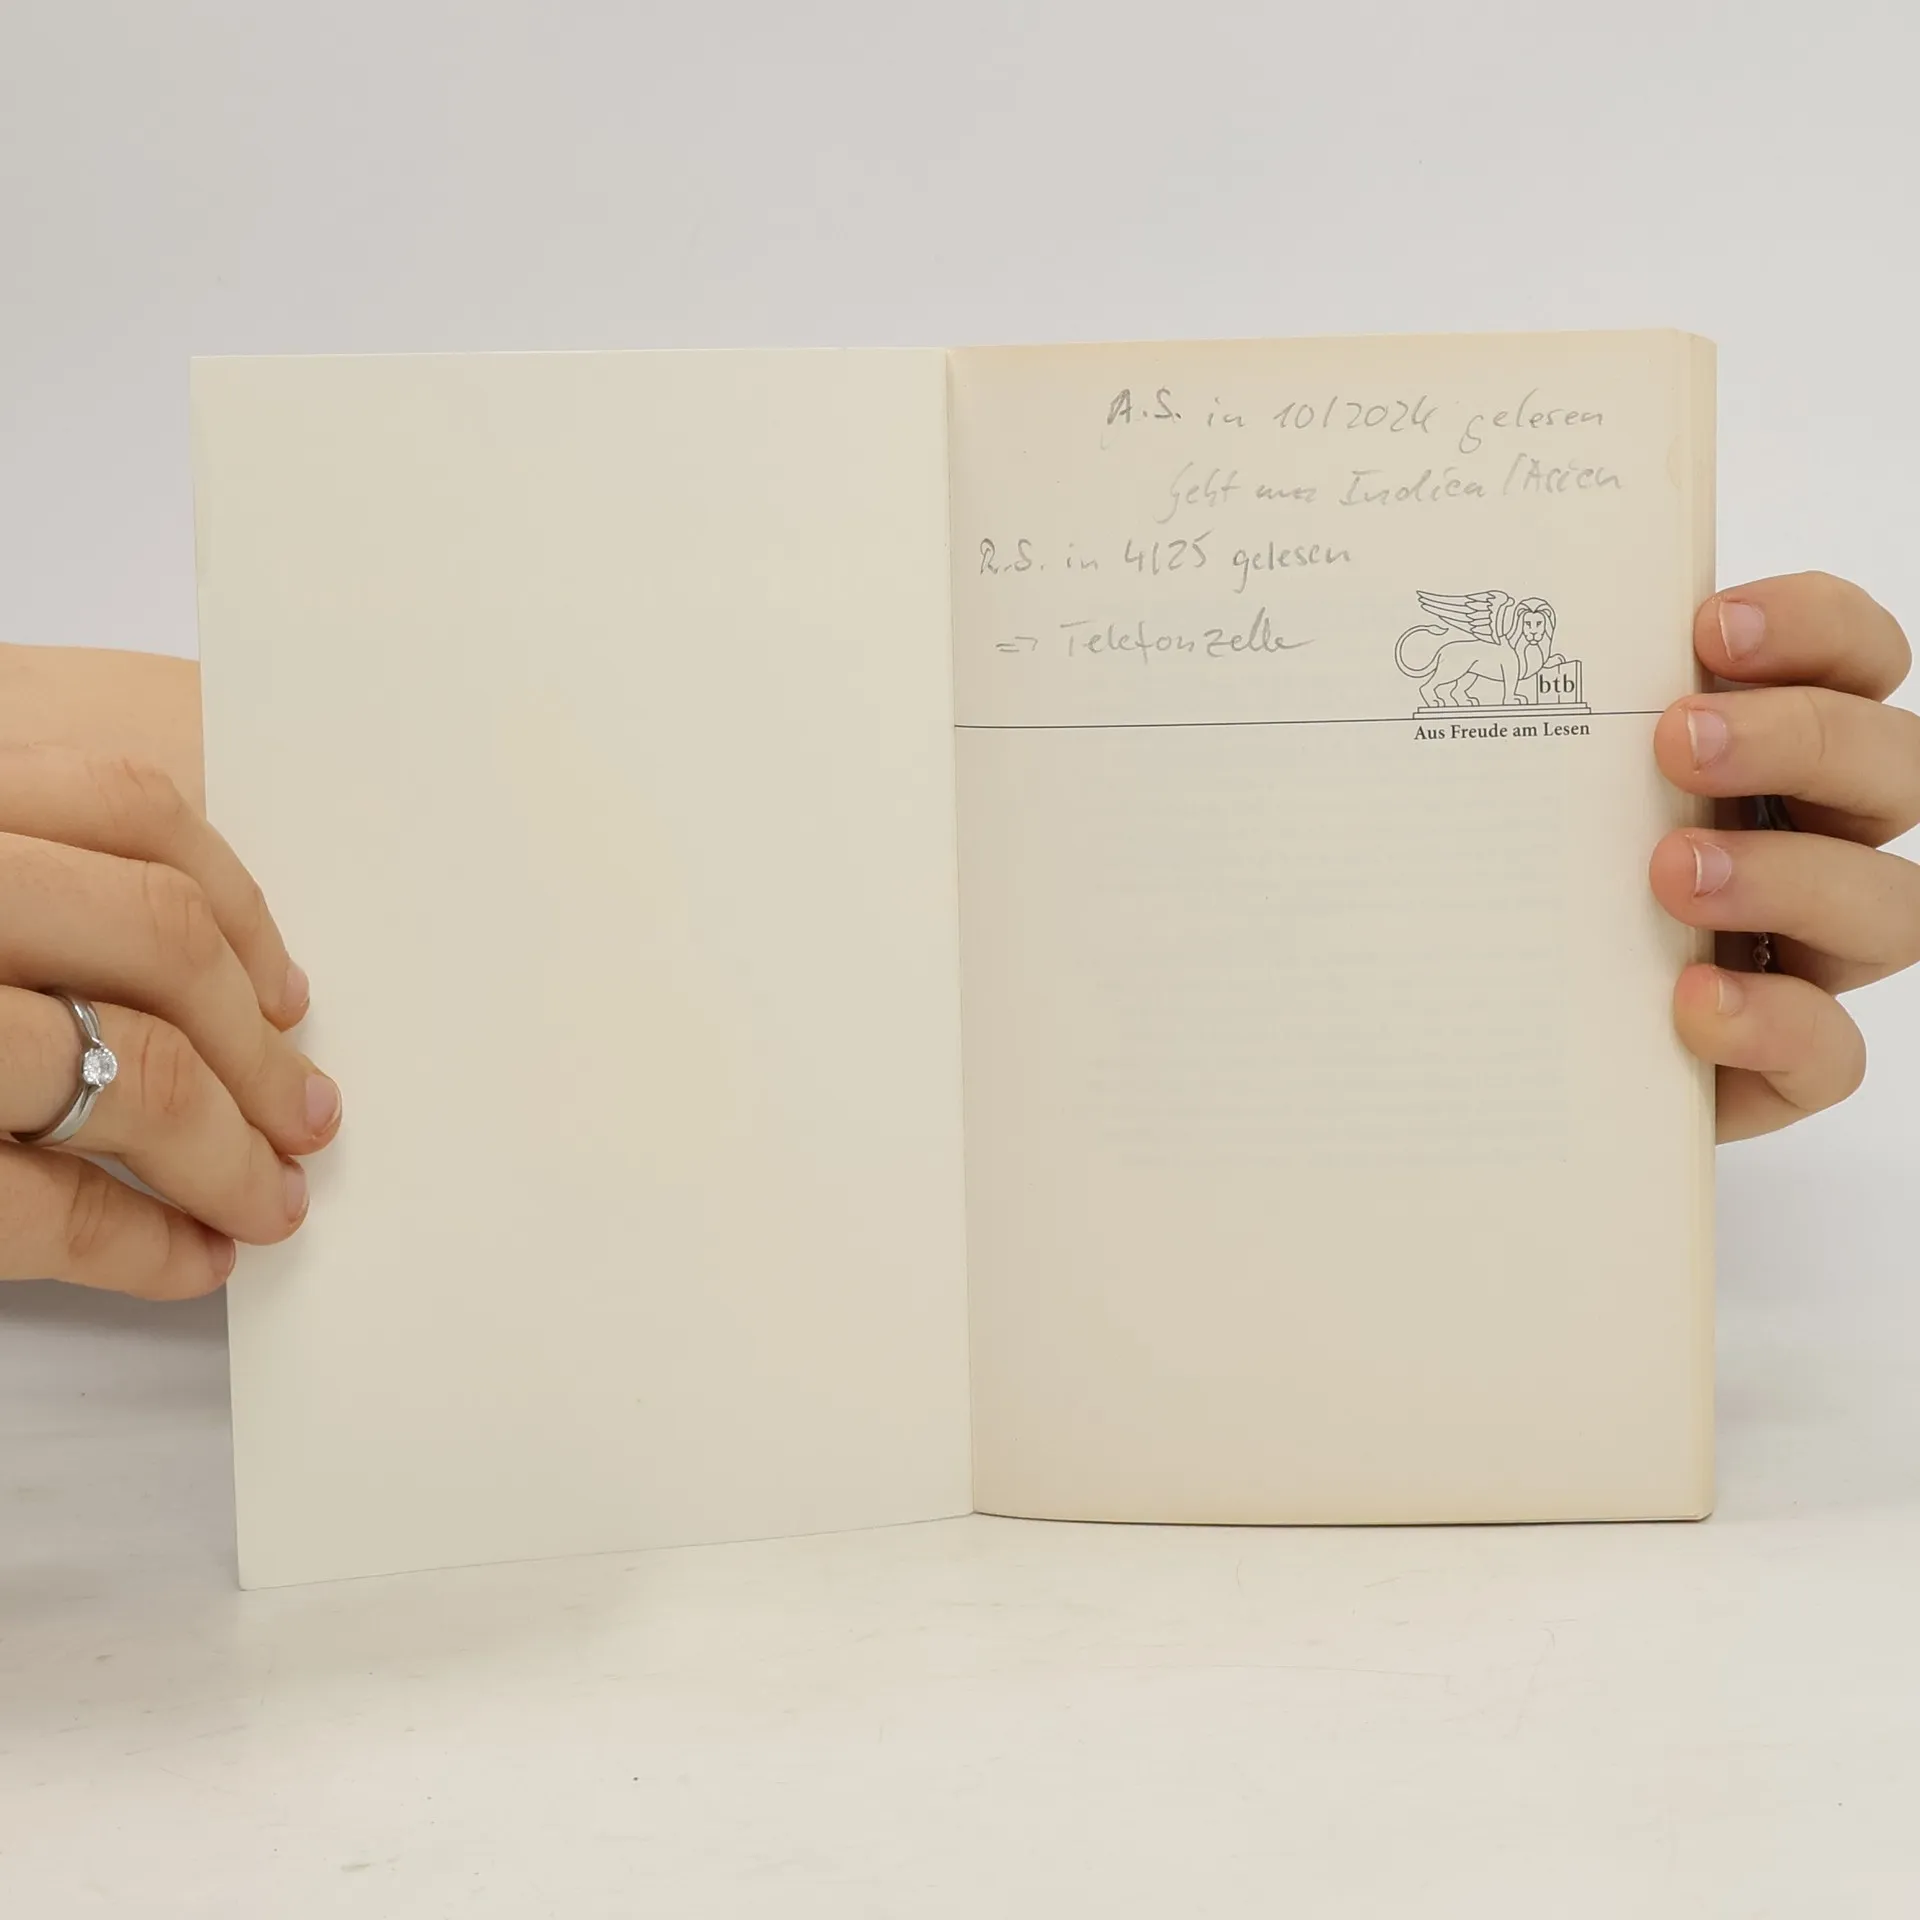 A.S. in 10/2024 gelesen
geht um Indien/Asien
R.S. in 4/25 gelesen
=> Telefonzelle
btb
Aus Freude am Lesen